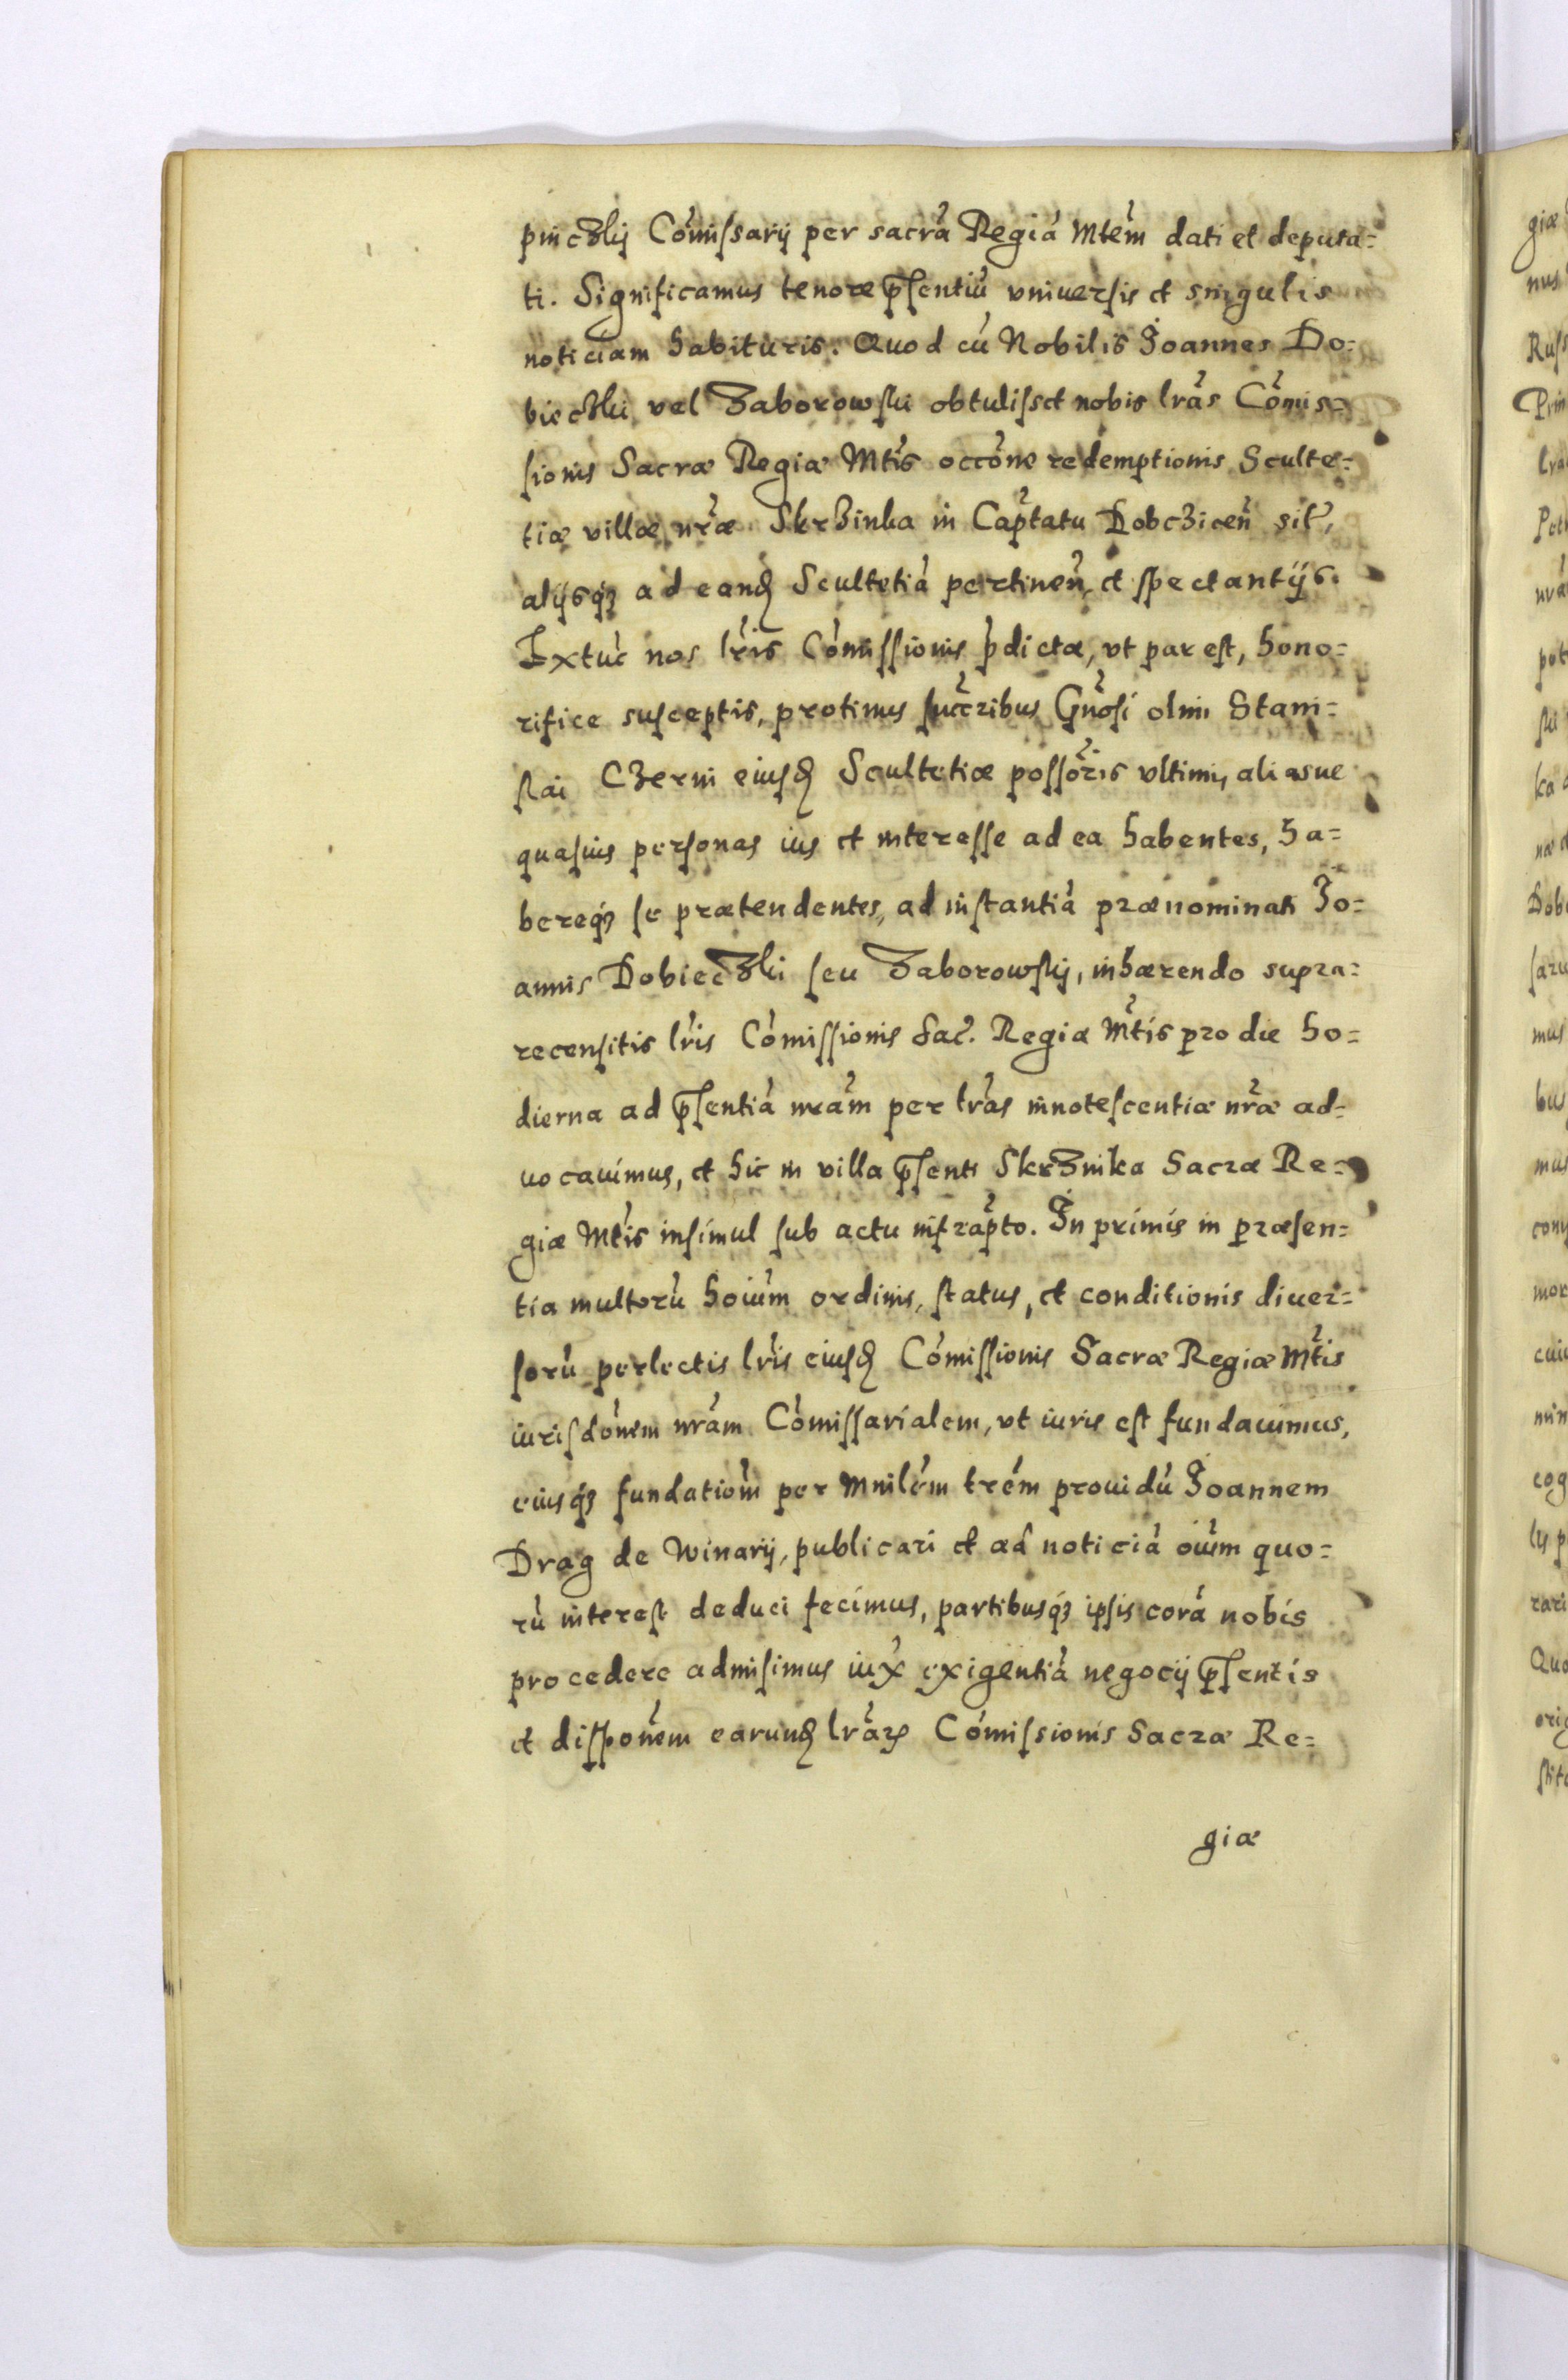 pinczkij Cõmissarij per sacrã Regiã Mtẽm dati et deputa=
ti. Significamus tenore pñsentiũ vniuersis et singulis
noticiam habituris: Quod cũ Nobilis Joannes Do=
bieczki vel Zaborowski obtulisset nobis lrãs Cõmis=
sionis Sacræ Regiæ Mtĩs occõne redemptionis Sculte=
tiæ villæ nræ̃ Skrzinka in Cap̃tatu Dobczicen̄ sit̃,
alijsq́ꝫ ad eanđ Scultetiã pertinen̄, et spectantijs.
Extũc nos lrĩs Cõmissionis p̃dictæ, vt par est, hono=
rifice susceptis, protinus succ̃ribus Gñosi olim Stani=
slai Czerni eiusđ Scultetiæ possõris vltimi, aliasue
quasuis personas ius et interesse ad ea habentes, ha=
bereq́ꝫ se prætendentes, ad instantiã prænominati Jo=
annis Dobieczki seu Zaborowskij, inhærendo supra=
recensitis lrĩs Cõmissionis Sac̃. Regiæ Mtĩs pro die ho=
dierna ad pñsentiã nrãm per lrãs innotescentiæ nræ̃ ad=
uocauimus, et hic in villa pñsenti Skrzinka Sacræ Re=
giæ Mtĩs insimul sub actu infrap̃to. In primis in præsen=
tia multorũ hoiũm ordinis, status, et conditionis diuer=
sorũ perlectis lrĩs eiusđ Cõmissionis Sacræ Regiæ Mtĩs
iurisdõnem nrãm Cõmissarialem, vt iuris est fundauimus,
eiusq́ꝫ fundatiom̃ per Mnilẽm trẽm prouidũ Joannem
Drag de Winarij, publicari et ad noticiã oiũm quo=
rũ interest deduci fecimus, partibusq́ꝫ ipsis corã nobis
procedere admisimus iux̃ exigentiã negocij pñsentis
et disspõnem earunđ lrãꝝ Cõmissionis Sacræ Re=
giæ